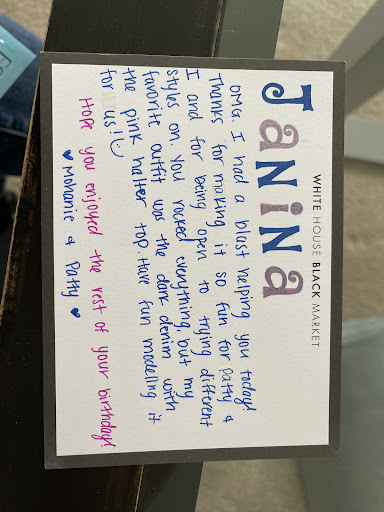 WHITE HOUSE BLACK MARKET
JaNiNa
OMG. I had a blast helping you today!
Thanks for making it so fun for Patty &
I and for being open to trying different
styles on. You rocked everything, but my
favorite outfit was the dark denim with
the pink halter top. Have fun modeling it
for us!!
Hope you enjoyed the rest of your birthday!
♥ Mohanie & Patty ♥